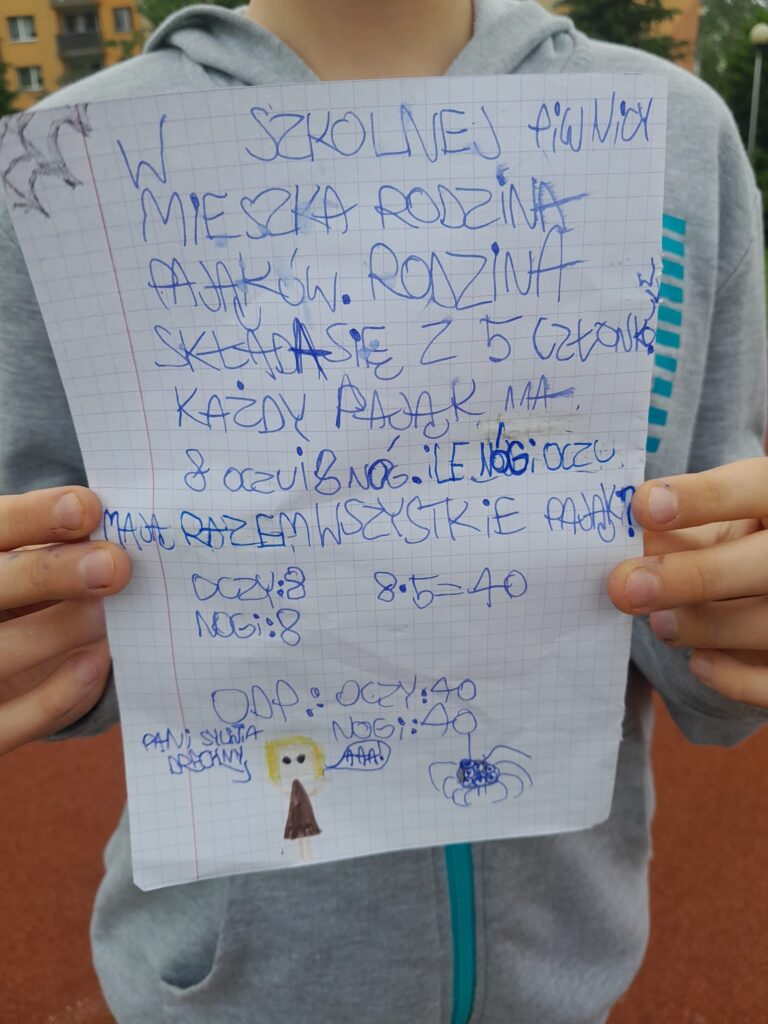 W SZKOLNEJ PIWNICY
MIESZKA RODZINA
PAJĄKÓW. RODZINA
SKŁADA SIĘ Z 5 CZŁONKÓW.
KAŻDY PAJĄK MA
8 OCZU I 8 NÓG. ILE NÓG I OCZU
MAJĄ RAZEM WSZYSTKIE PAJĄKI?
OCZY:8 8·5=40
NOGI:8
ODP.: OCZY:40
NOGI:40
PANI SYLWIA
AAA!